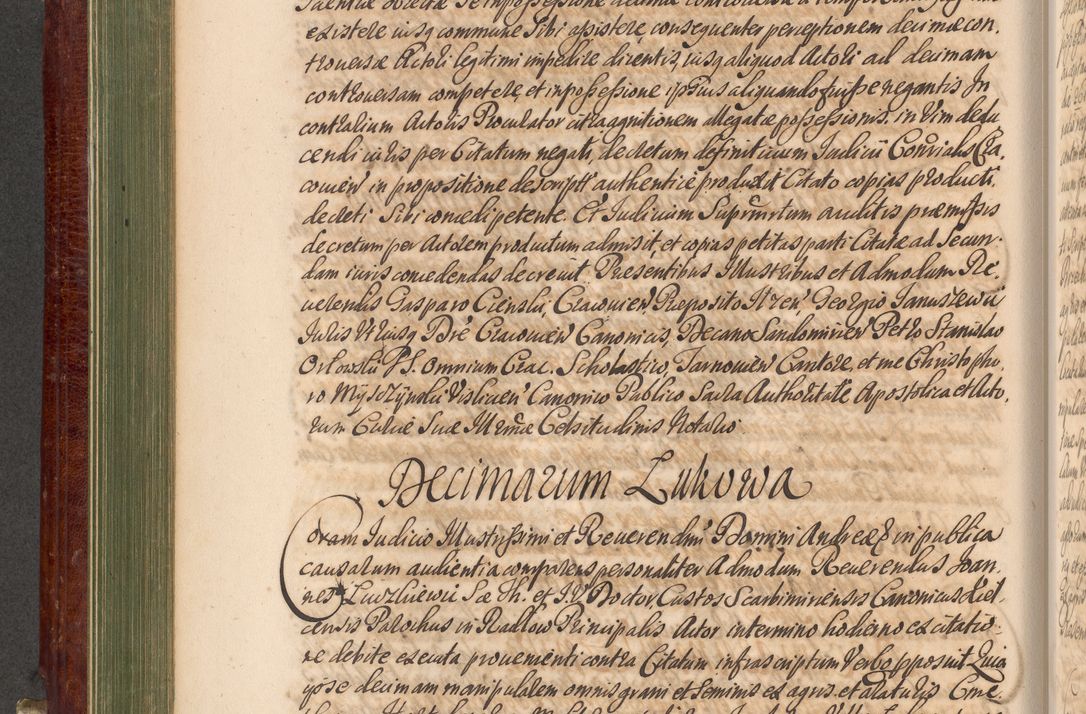 existere iusq commune Sibi assistere, consequenter perceptionem decimæ con,
trouersæ Actoli legitimi impedire dicentis, iusq aliquod Actoli ad decimam
controuersam competere, et in possessione ipsius aliquando fuisse negantis In
contrarium Actoris Procurator citra agnitionem allegatæ possessionis, in Vim dedu
cendi iuris per Citatum negati, decretum definitiuum Iudicii Conrialis Cra,
couien in propositione descript authentice produxit Citato copias producti
decreti Sibi concedi petente. Et Iudicium Suprmtum auditis præmissis
decretum per Actorem productum admisit, et copias petitas parti Citatæ ad Secun,
dam iuris concedendas decreuit. Præsentibus Illustribus et Admodum Re,
uerendis Gasparo Cienski, Cracouien, Præposito Georgio Januszewic
Iuris Vtriusq Dre Cracouien Canonicis, Decano Sandomirien Petro Stanislao
Orlowski PS. Omnium Crac. Scholastico, Tarnouien Cantore, et me Christopho,
ro Myszczynski Visliciaen Canonico Publico Sacra Authoritate Apostolica et Acto,
rum Curiæ Suæ Illrmæ Celsitudinis Notario
Decimarum Lukowa
Coram Iudicio Illustrissimi et Reuerendmi Domini Andreæ in publica
causarum audientia comparens personaliter Admodum Reuerendus Joan,
nes Sæ Th. et I.V. Doctor, Custos Scarbimiriensis Canonicus Kiel
censis Parochus in Radlow Principalis Actor in termino hodierno ex citatio,
ne debite executa prouenienti contra Citatum infrascriptum Verbo pposuit Quia
ipse decimam manipularem omnis grani et Seminis ex agris et araturis Cme